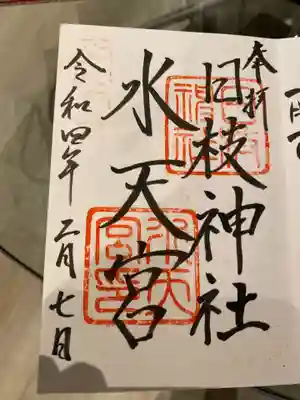 奉拝
日枝神社
水天宮
令和四年二月七日
水天宮印